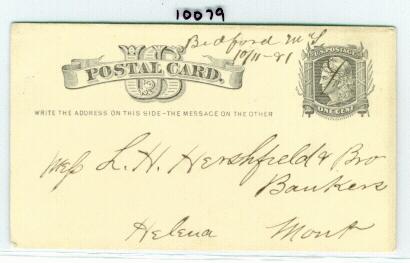 10079
Bedford M T
10/11-81
US
POSTAL CARD.
U.S. POSTAGE
ONE CENT
WRITE THE ADDRESS ON THIS SIDE-THE MESSAGE ON THE OTHER
Mess L. H. Hershfield & Bro
Bankers
Helena Mont